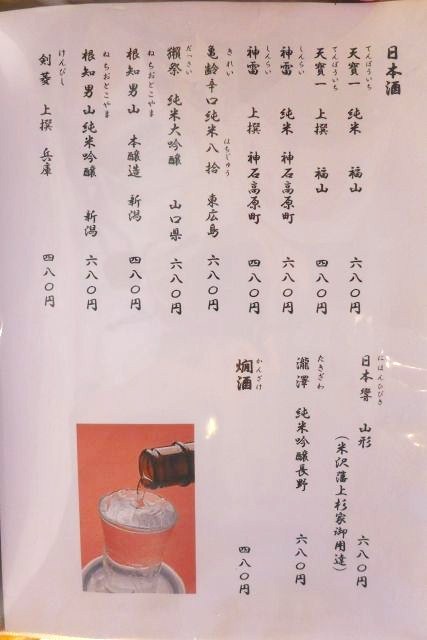 日本酒
てんぽういち
天寶一 純米 福山 六八〇円
てんぽういち
天寶一 上撰 福山 四八〇円
しんらい
神雷 純米 神石高原町 六八〇円
しんらい
神雷 上撰 神石高原町 四八〇円
きれい はちじゅう
亀齢辛口純米八拾 東広島 六八〇円
だっさい
獺祭 純米大吟醸 山口県 六八〇円
ねちおとこやま
根知男山 本醸造 新潟 四八〇円
ねちおとこやま
根知男山 純米吟醸 新潟 六八〇円
けんびし
剣菱 上撰 兵庫 四八〇円
にほんひびき
日本響 山形 六八〇円
(米沢藩上杉家御用達)
たきざわ
瀧澤 純米吟醸長野 六八〇円
かんざけ
燗酒 四八〇円